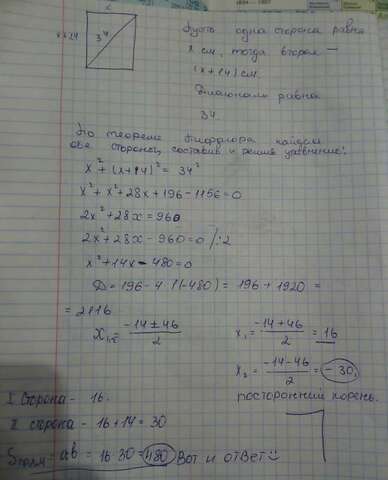 x
x+14
34
Пусть одна сторона равна
x см, тогда вторая —
(x+14) см.
Диагональ равна
34.
По теореме Пифагора найдем
обе стороны, составив и решив уравнение:
x² + (x+14)² = 34²
x² + x² + 28x + 196 - 1156 = 0
2x² + 28x = 960
2x² + 28x - 960 = 0 /:2
x² + 14x - 480 = 0
D = 196 - 4·(-480) = 196 + 1920 =
= 2116
x₁,₂ = (-14 ± 46)/2
x₁ = (-14+46)/2 = 16
x₂ = (-14-46)/2 = -30,
посторонний корень.
I сторона - 16.
II сторона - 16+14 = 30
Sпрям = ab = 16·30 = 480 Вот и ответ